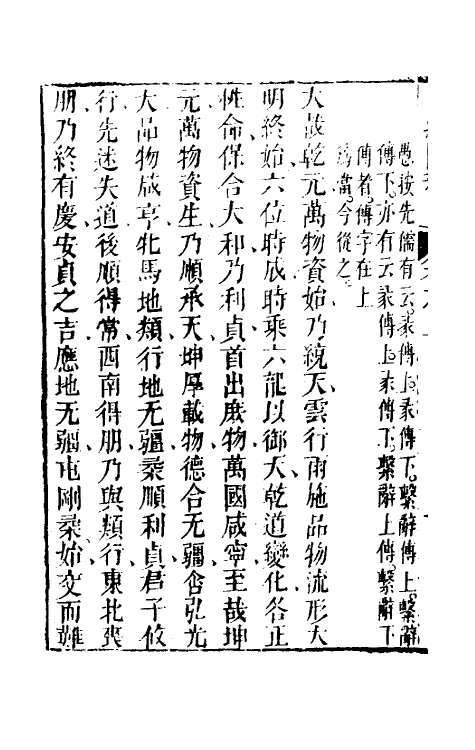 愚按先儒有云彖傳上彖傳下繫辭傳上繫辭
傳下亦有云彖傳上彖傳下繫辭上傳繫辭下
傳者傳字在上
爲當今從之
大哉乾元萬物資始乃統天雲行雨施品物流形大
明終始六位時成時乘六龍以御天乾道變化各正
性命保合大和乃利貞首出庶物萬國咸寧至哉坤
元萬物資生乃順承天坤厚載物德合无疆含弘光
大品物咸亨牝馬地類行地无疆柔順利貞君子攸
行先迷失道後順得常西南得朋乃與類行東北喪
朋乃終有慶安貞之吉應地无疆屯剛柔始交而難